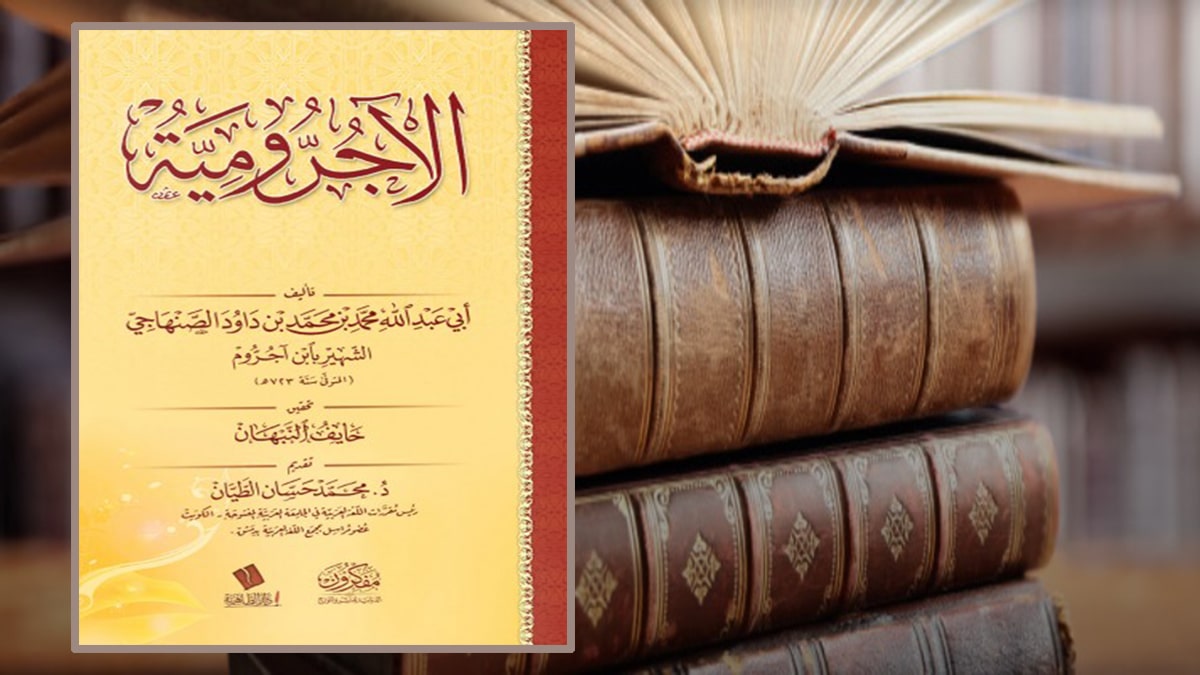 الْآجُرُّومِيَّةُ
تأليف
أَبِي عَبْدِ اللهِ مُحَمَّدِ بْنِ مُحَمَّدِ بْنِ دَاوُدَ الصَّنْهَاجِيِّ
الشَّهِيرِ بِابْنِ آجُرُّومَ
(المتوفى سَنَة ٧٢٣هـ)
تحقيق
حَايِف النَّبْهَان
تقديم
د. مُحَمَّد حَسَّان الطَّيَّان
رئيس مقررات اللغة العربية في الجامعة العربية المفتوحة - الكويت
عضو مراسل مجمع اللغة العربية بدمشق.
مفكرون
دار الظاهرية